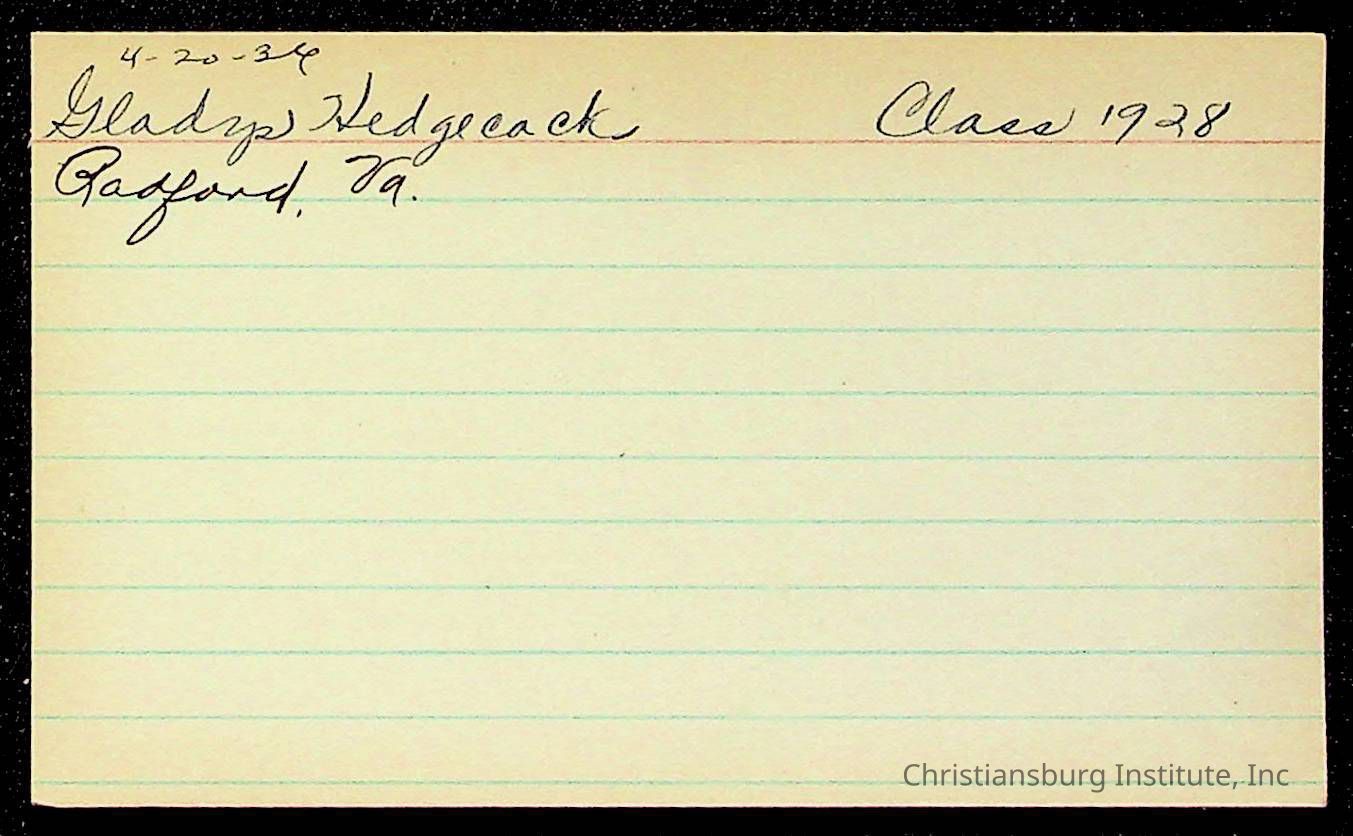 4-20-36
Gladys Hedgecock Class 1928
Radford, Va.
Christiansburg Institute, Inc